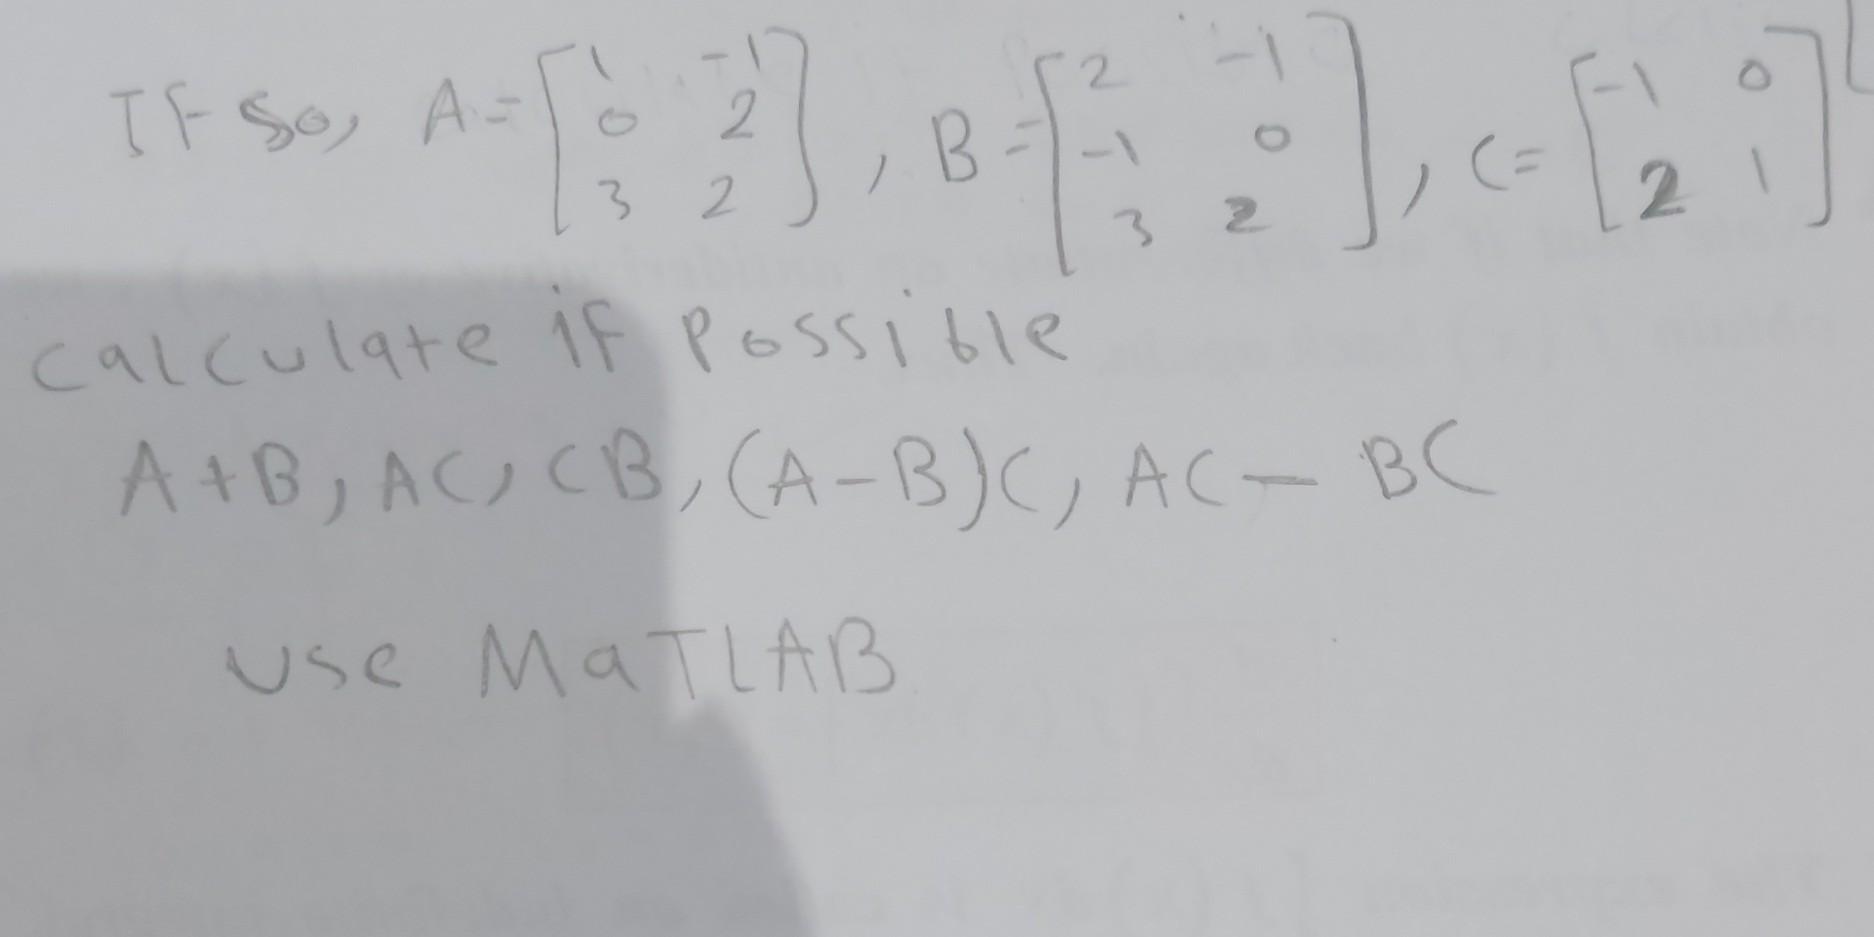 If so, A = [1 -1
0 2
3 2], B = [2 -1
-1 0
3 2], C = [-1 0
2 1]
calculate if possible
A + B, AC, CB, (A - B)C, AC - BC
use MaTLAB